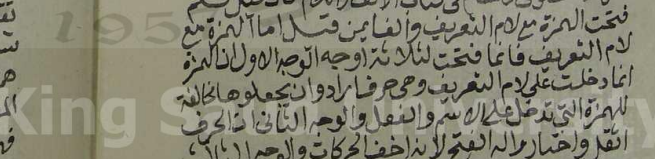 فتحت الهمزة مع لام التعريف والفا يمن قيل اما الهمزة مع
لام التعريف فانما فتحت لثلاثة اوجه الوجه الاول ان الهمزة
انما دخلت على لام التعريف وهى حرف فارادوا ان يجعلوها مخالفة
للهمزة التى تدخل على الاسم والفعل والوجه الثانى ان الحرف
اثقل واختاروا له الفتح لانه اخف الحركات والوجه الثالث
195
King Saud University